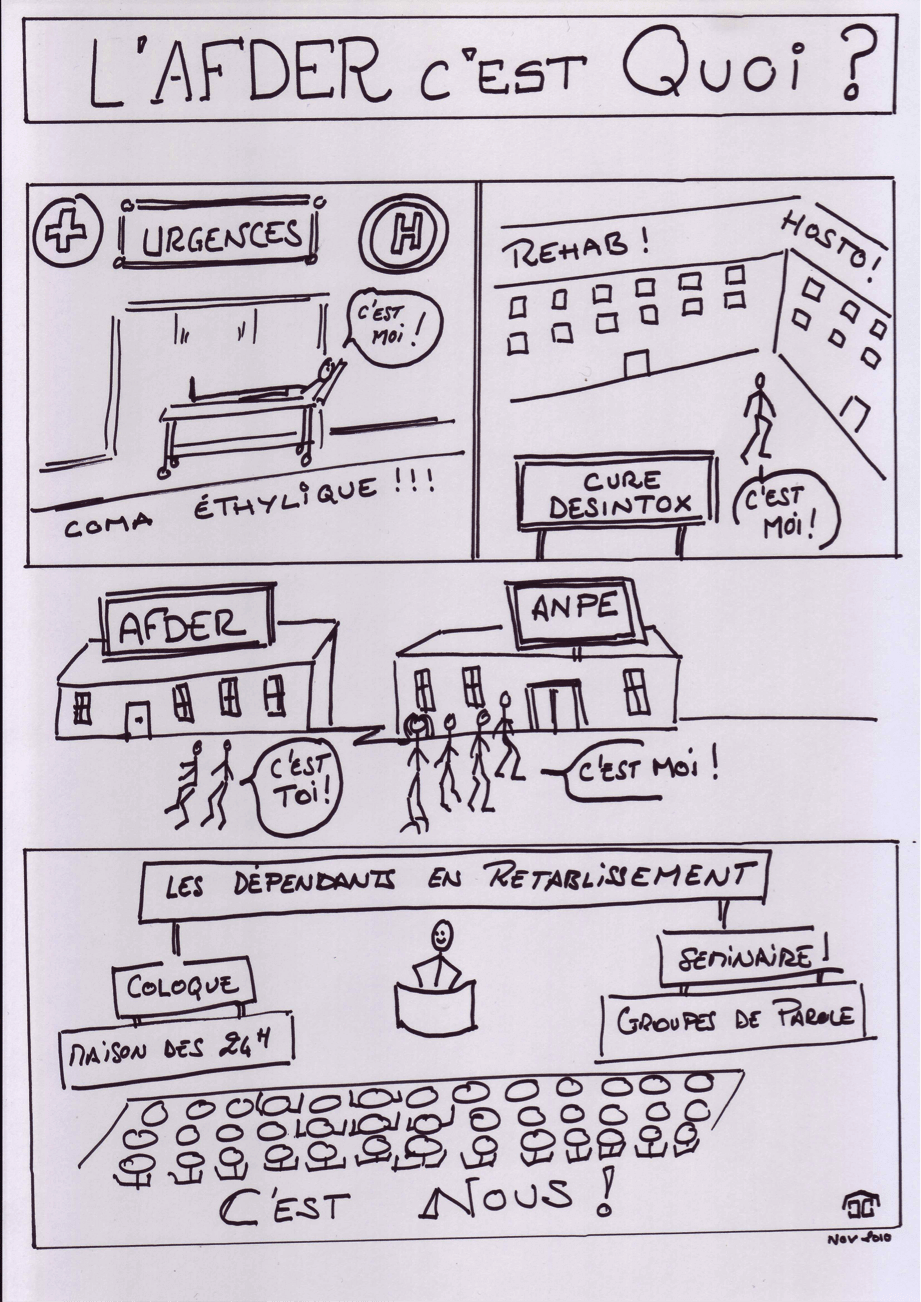 L'AFDER C'EST QUOI ?
URGENCES
H
C'EST
MOI !
COMA ÉTHYLIQUE !!!
REHAB !
HOSTO !
CURE
DESINTOX
C'EST
MOI !
AFDER
ANPE
C'EST
TOI !
C'EST MOI !
LES DÉPENDANTS EN RETABLISSEMENT
COLOQUE
MAISON DES 24H
SEMINAIRE !
GROUPES DE PAROLE
C'EST NOUS !
NOV 2010